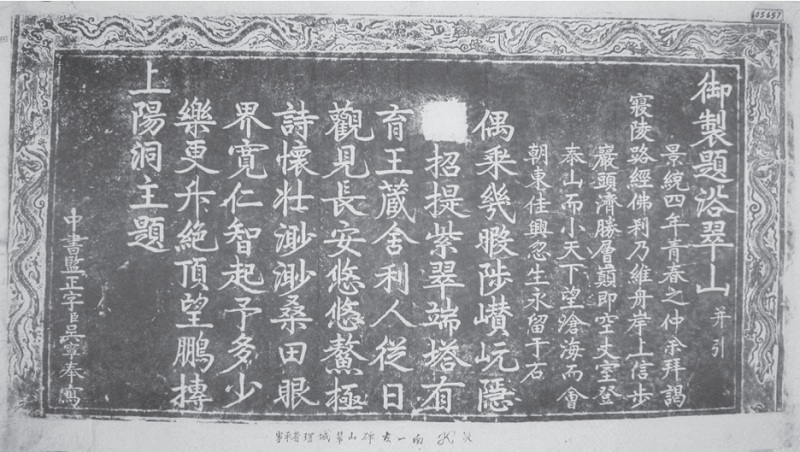 御製題浴翠山 并引
景統四年青春之仲余拜謁
寢陵路經佛刹乃維舟岸上信步
巖頭濟勝層巔即空丈室登
泰山而小天下望滄海而會
朝東佳興忽生永留于石
偶乘幾暇陟巑岏隱
招提紫翠端塔有
育王藏舍利人從日
觀見長安悠悠鰲極
詩懷壯渺渺桑田眼
界寬仁智起予多少
樂更升絶頂望鵬摶
上陽洞主題
中書監正字臣吳寧奉寫
05657